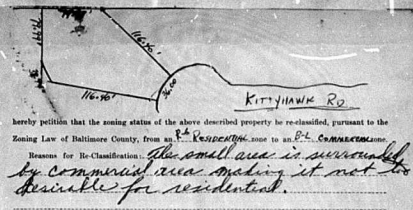 116.40'
116.40'
36.00
KITTYHAWK RD
hereby petition that the zoning status of the above described property be re-classified, pursuant to the
Zoning Law of Baltimore County, from an R6 RESIDENTIAL zone to an B-L COMMERCIAL zone.
Reasons for Re-Classification: The small area is surrounded
by commercial area making it not too
desirable for residential.